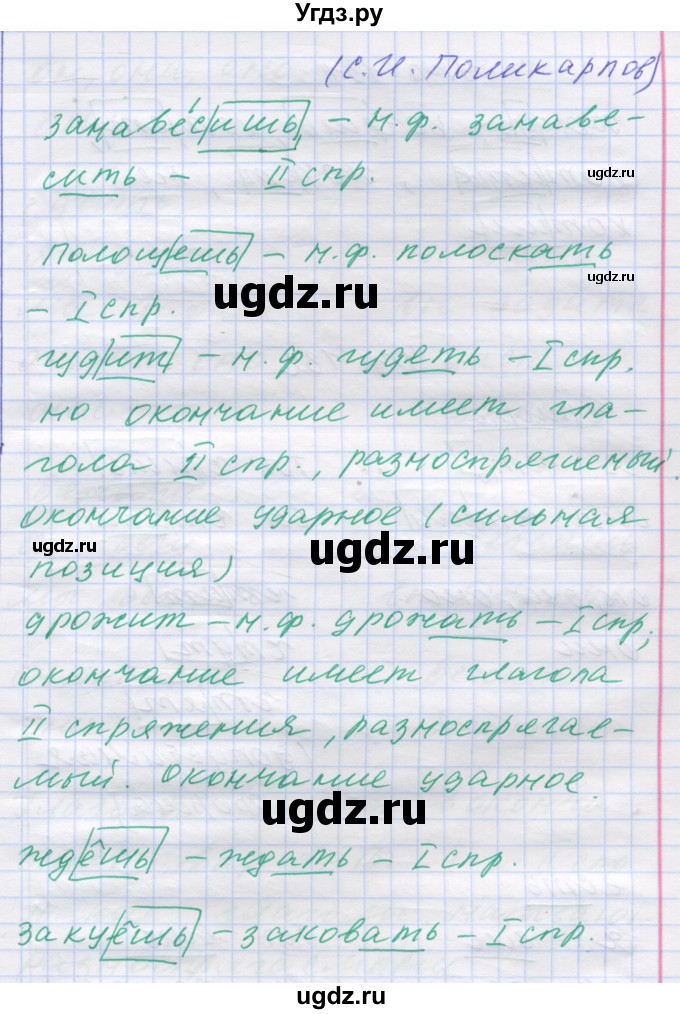 Угдз.ру
(С.И. Поликарпов)
занаве́сишь, – н.ф. занаве-
сить – II спр.
ugdz.ru
полощешь – н.ф. полоскать
ugdz.ru
ugdz.ru
– I спр.
гудит – н.ф. гудеть – I спр,
но окончание имеет гла-
гола II спр., разноспрягаемый.
окончание ударное (сильная
ugdz.ru
ugdz.ru
позиция)
дрожит – н.ф. дрожать – I спр,
окончание имеет глагола
II спряжения, разноспрягае-
мый. Окончание ударное.
ugdz.ru
ждёшь – ждать – I спр.
закуёшь – заковать – I спр.
ugdz.ru